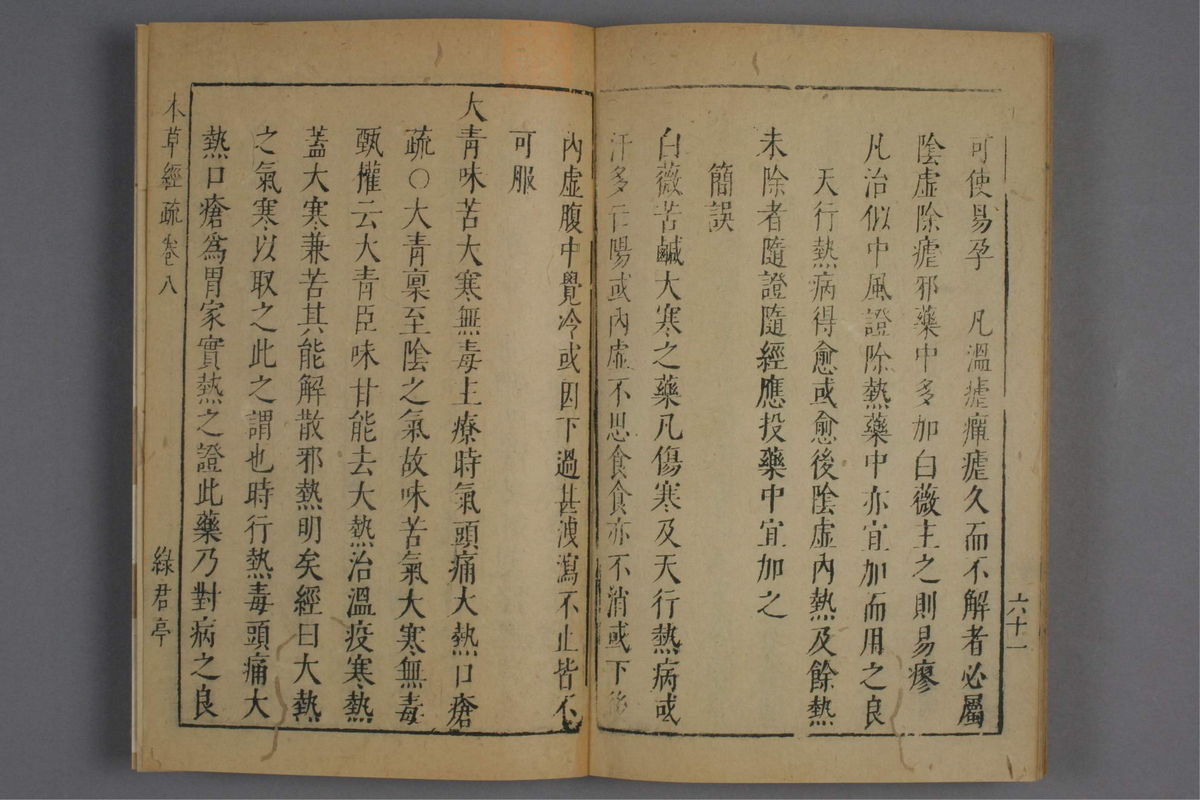 可使易孕　凡溫瘧癉瘧久而不解者必屬
陰虛除瘧邪藥中多加白薇主之則易瘳
凡治似中風證除熱藥中亦宜加而用之良
天行熱病得愈或愈後陰虛內熱及餘熱
未除者隨證隨經應投藥中宜加之
簡誤
白薇苦鹹大寒之藥凡傷寒及天行熱病或
汗多亡陽或內虛不思食食亦不消或下後
六十一
內虛腹中覺冷或因下過甚洩瀉不止皆不
可服
大青味苦大寒無毒主療時氣頭痛大熱口瘡
疏〇大青稟至陰之氣故味苦氣大寒無毒
甄權云大青臣味甘能去大熱治溫疫寒熱
蓋大寒兼苦其能解散邪熱明矣經曰大熱
之氣寒以取之此之謂也時行熱毒頭痛大
熱口瘡爲胃家實熱之證此藥乃對病之良
本草經疏卷八
綠君亭